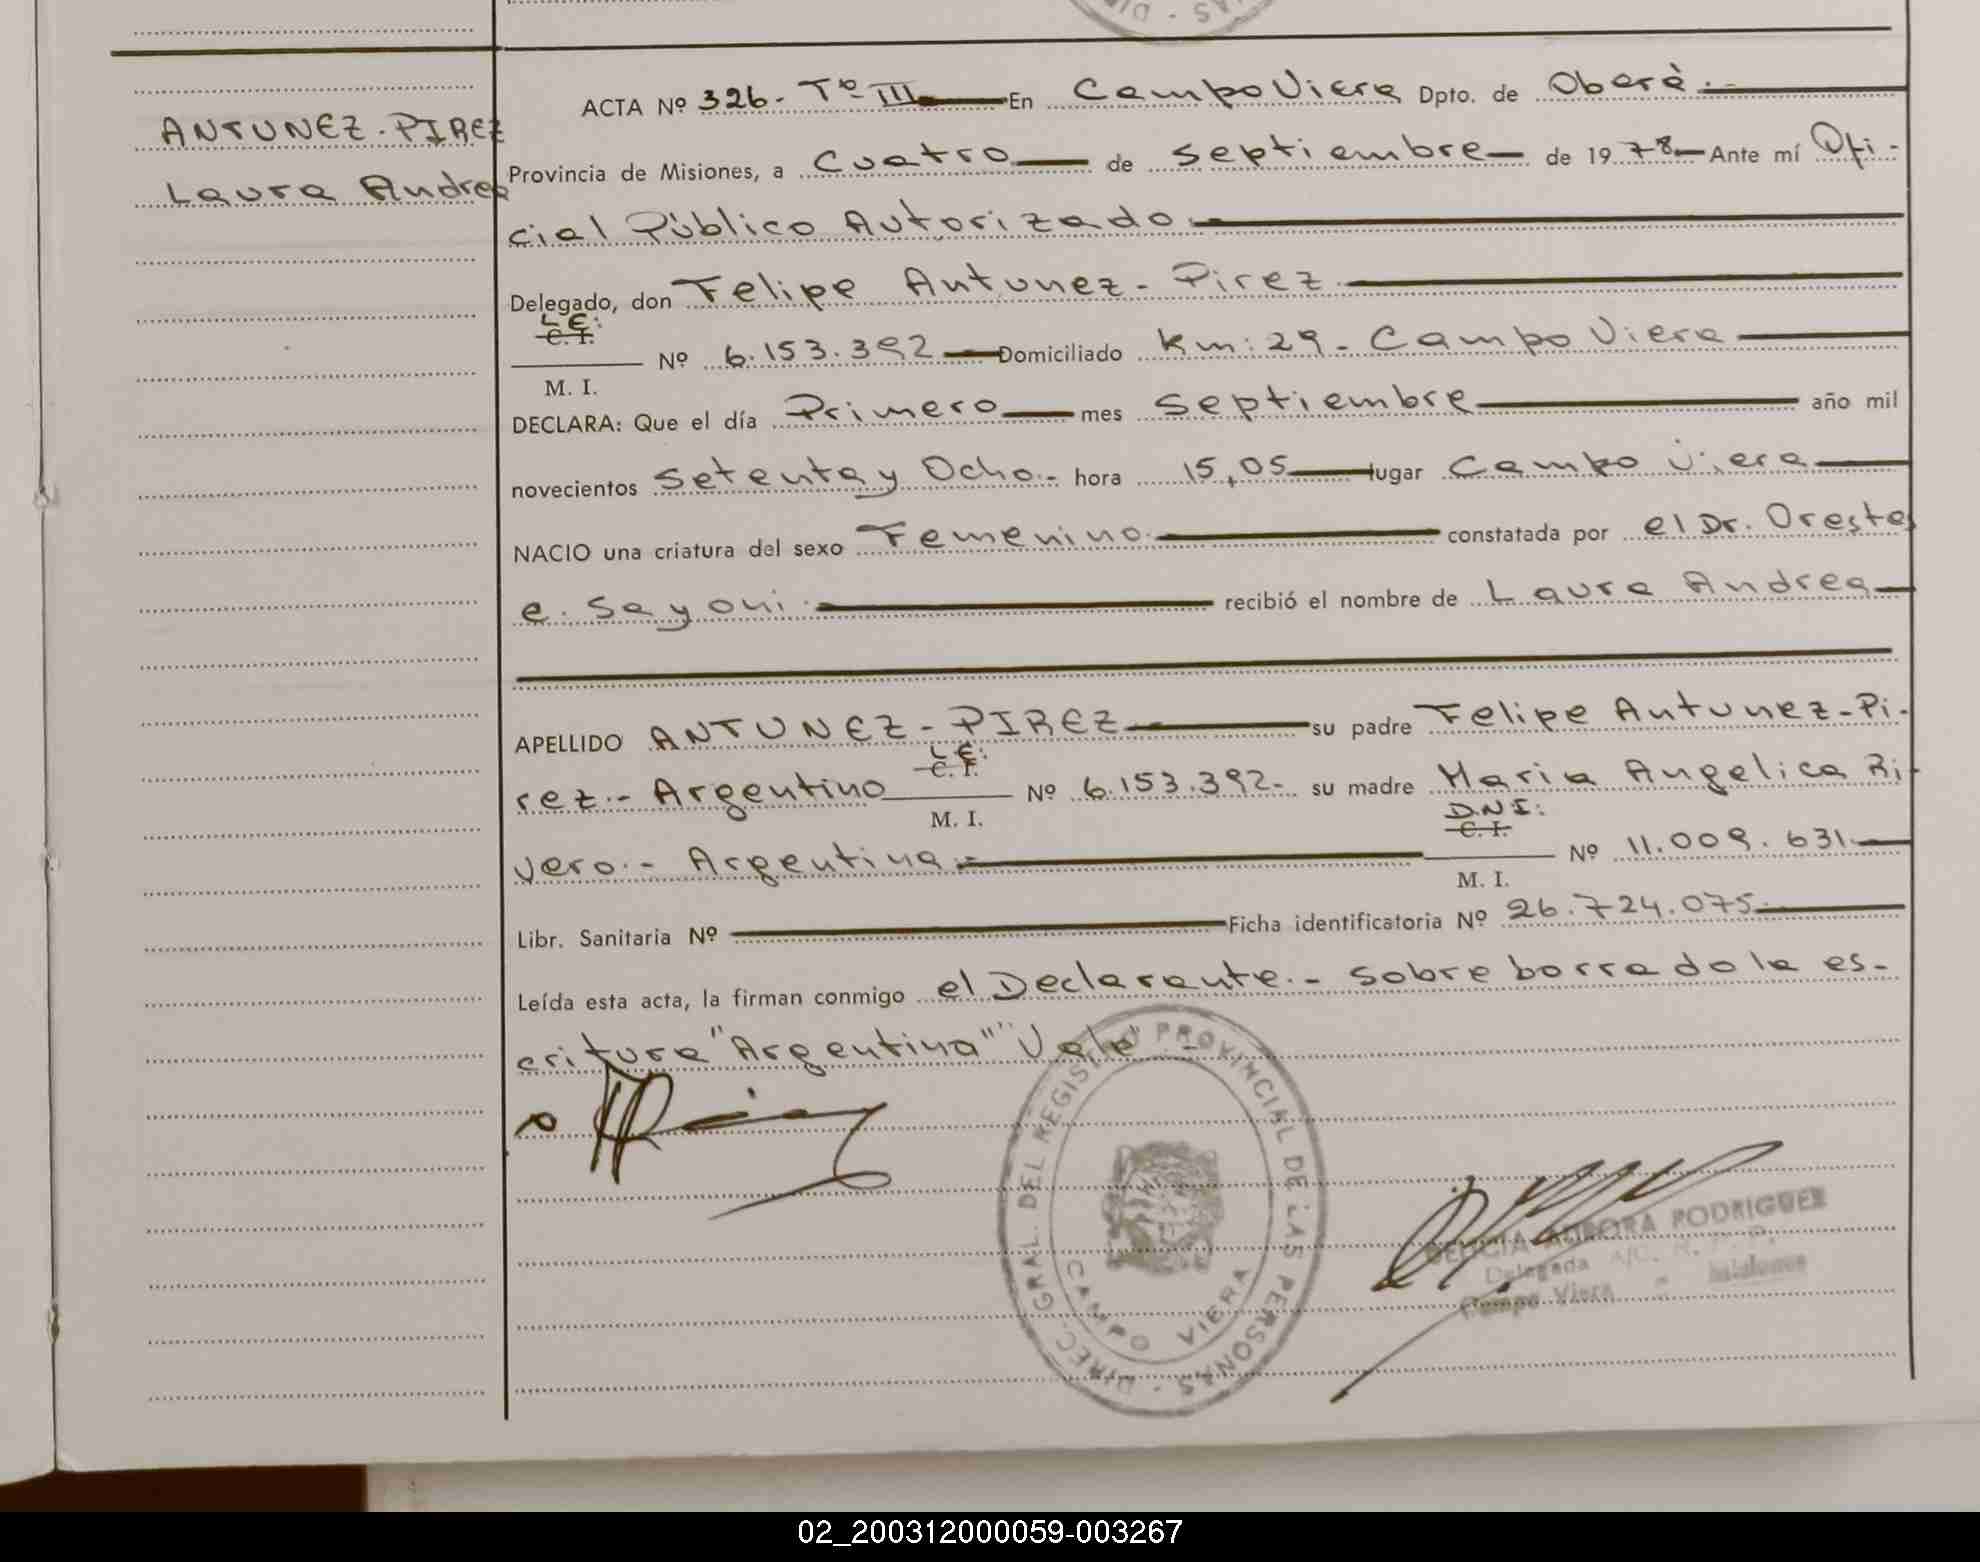 ANTUNEZ-PIREZ
Laura Andrea
ACTA Nº 326.- Tº III En Campo Viera Dpto. de Oberá.-
Provincia de Misiones, a Cuatro de Septiembre de 1978 Ante mí Ofi-
cial Público Autorizado.-
Delegado, don Felipe Antunez-Pirez.
L.E:
C. I.
M. I.
Nº 6.153.392 Domiciliado Km: 29- Campo Viera
DECLARA: Que el día Primero mes Septiembre año mil
novecientos Setenta y Ocho.- hora 15,05 lugar Campo Viera
NACIO una criatura del sexo Femenino. constatada por el Dr. Orestes
e. Sayoni. recibió el nombre de Laura Andrea
APELLIDO ANTUNEZ-PIREZ su padre Felipe Antunez-Pi-
L.E:
C. I.
rez.- Argentino Nº 6.153.392.- su madre Maria Angelica Ri-
M. I.
D.N.I:
C. I.
vero.- Argentina.- Nº 11.009.631.
M. I.
Libr. Sanitaria Nº Ficha identificatoria Nº 26.724.075.
Leída esta acta, la firman conmigo el Declarante.- Sobre borrado la es-
critura "Argentina" "Vale".-
DIREC. GRAL. DEL REGISTRO PROVINCIAL DE LAS PERSONAS -
CAMPO VIERA
AURORA RODRIGUEZ
Delegada A/C. R. P. P.
Campo Viera - Misiones
02_200312000059-003267